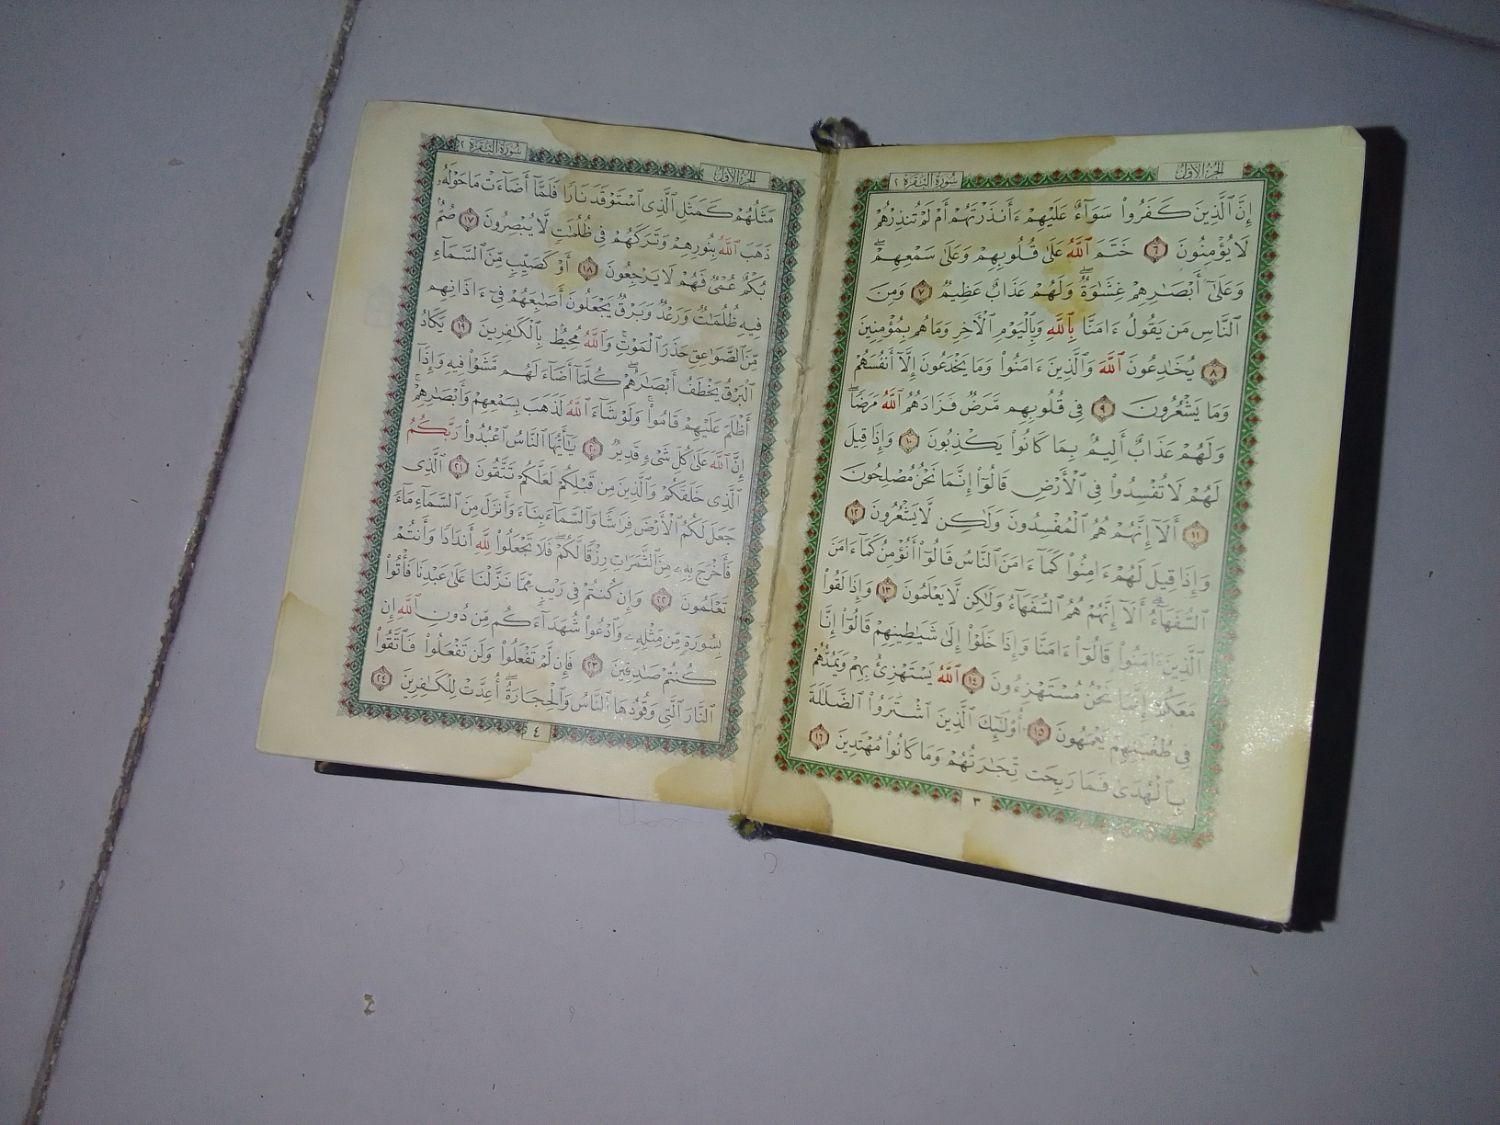 الجزء الأول
سورة البقرة ٢
إِنَّ ٱلَّذِينَ كَفَرُوا۟ سَوَآءٌ عَلَيْهِمْ ءَأَنذَرْتَهُمْ أَمْ لَمْ تُنذِرْهُمْ
لَا يُؤْمِنُونَ ٦ خَتَمَ ٱللَّهُ عَلَىٰ قُلُوبِهِمْ وَعَلَىٰ سَمْعِهِمْ ۖ
وَعَلَىٰٓ أَبْصَـٰرِهِمْ غِشَـٰوَةٌ ۖ وَلَهُمْ عَذَابٌ عَظِيمٌ ٧ وَمِنَ
ٱلنَّاسِ مَن يَقُولُ ءَامَنَّا بِٱللَّهِ وَبِٱلْيَوْمِ ٱلْـَٔاخِرِ وَمَا هُم بِمُؤْمِنِينَ
٨ يُخَـٰدِعُونَ ٱللَّهَ وَٱلَّذِينَ ءَامَنُوا۟ وَمَا يَخْدَعُونَ إِلَّآ أَنفُسَهُمْ
وَمَا يَشْعُرُونَ ٩ فِى قُلُوبِهِم مَّرَضٌ فَزَادَهُمُ ٱللَّهُ مَرَضًا ۖ
وَلَهُمْ عَذَابٌ أَلِيمٌۢ بِمَا كَانُوا۟ يَكْذِبُونَ ١٠ وَإِذَا قِيلَ
لَهُمْ لَا تُفْسِدُوا۟ فِى ٱلْأَرْضِ قَالُوٓا۟ إِنَّمَا نَحْنُ مُصْلِحُونَ
١١ أَلَآ إِنَّهُمْ هُمُ ٱلْمُفْسِدُونَ وَلَـٰكِن لَّا يَشْعُرُونَ ١٢
وَإِذَا قِيلَ لَهُمْ ءَامِنُوا۟ كَمَآ ءَامَنَ ٱلنَّاسُ قَالُوٓا۟ أَنُؤْمِنُ كَمَآ ءَامَنَ
ٱلسُّفَهَآءُ ۗ أَلَآ إِنَّهُمْ هُمُ ٱلسُّفَهَآءُ وَلَـٰكِن لَّا يَعْلَمُونَ ١٣ وَإِذَا لَقُوا۟
ٱلَّذِينَ ءَامَنُوا۟ قَالُوٓا۟ ءَامَنَّا وَإِذَا خَلَوْا۟ إِلَىٰ شَيَـٰطِينِهِمْ قَالُوٓا۟ إِنَّا
مَعَكُمْ إِنَّمَا نَحْنُ مُسْتَهْزِءُونَ ١٤ ٱللَّهُ يَسْتَهْزِئُ بِهِمْ وَيَمُدُّهُمْ
فِى طُغْيَـٰنِهِمْ يَعْمَهُونَ ١٥ أُو۟لَـٰٓئِكَ ٱلَّذِينَ ٱشْتَرَوُا۟ ٱلضَّلَـٰلَةَ
بِٱلْهُدَىٰ فَمَا رَبِحَت تِّجَـٰرَتُهُمْ وَمَا كَانُوا۟ مُهْتَدِينَ ١٦
٣
الجزء الأول
سورة البقرة ٢
مَثَلُهُمْ كَمَثَلِ ٱلَّذِى ٱسْتَوْقَدَ نَارًا فَلَمَّآ أَضَآءَتْ مَا حَوْلَهُۥ
ذَهَبَ ٱللَّهُ بِنُورِهِمْ وَتَرَكَهُمْ فِى ظُلُمَـٰتٍ لَّا يُبْصِرُونَ ١٧ صُمٌّۢ
بُكْمٌ عُمْىٌ فَهُمْ لَا يَرْجِعُونَ ١٨ أَوْ كَصَيِّبٍ مِّنَ ٱلسَّمَآءِ
فِيهِ ظُلُمَـٰتٌ وَرَعْدٌ وَبَرْقٌ يَجْعَلُونَ أَصَـٰبِعَهُمْ فِىٓ ءَاذَانِهِم
مِّنَ ٱلصَّوَٰعِقِ حَذَرَ ٱلْمَوْتِ ۚ وَٱللَّهُ مُحِيطٌۢ بِٱلْكَـٰفِرِينَ ١٩ يَكَادُ
ٱلْبَرْقُ يَخْطَفُ أَبْصَـٰرَهُمْ ۖ كُلَّمَآ أَضَآءَ لَهُم مَّشَوْا۟ فِيهِ وَإِذَآ
أَظْلَمَ عَلَيْهِمْ قَامُوا۟ ۚ وَلَوْ شَآءَ ٱللَّهُ لَذَهَبَ بِسَمْعِهِمْ وَأَبْصَـٰرِهِمْ ۚ
إِنَّ ٱللَّهَ عَلَىٰ كُلِّ شَىْءٍ قَدِيرٌ ٢٠ يَـٰٓأَيُّهَا ٱلنَّاسُ ٱعْبُدُوا۟ رَبَّكُمُ
ٱلَّذِى خَلَقَكُمْ وَٱلَّذِينَ مِن قَبْلِكُمْ لَعَلَّكُمْ تَتَّقُونَ ٢١ ٱلَّذِى
جَعَلَ لَكُمُ ٱلْأَرْضَ فِرَٰشًا وَٱلسَّمَآءَ بِنَآءً وَأَنزَلَ مِنَ ٱلسَّمَآءِ مَآءً
فَأَخْرَجَ بِهِۦ مِنَ ٱلثَّمَرَٰتِ رِزْقًا لَّكُمْ ۖ فَلَا تَجْعَلُوا۟ لِلَّهِ أَندَادًا وَأَنتُمْ
تَعْلَمُونَ ٢٢ وَإِن كُنتُمْ فِى رَيْبٍ مِّمَّا نَزَّلْنَا عَلَىٰ عَبْدِنَا فَأْتُوا۟
بِسُورَةٍ مِّن مِّثْلِهِۦ وَٱدْعُوا۟ شُهَدَآءَكُم مِّن دُونِ ٱللَّهِ إِن
كُنتُمْ صَـٰدِقِينَ ٢٣ فَإِن لَّمْ تَفْعَلُوا۟ وَلَن تَفْعَلُوا۟ فَٱتَّقُوا۟
ٱلنَّارَ ٱلَّتِى وَقُودُهَا ٱلنَّاسُ وَٱلْحِجَارَةُ ۖ أُعِدَّتْ لِلْكَـٰفِرِينَ ٢٤
٤